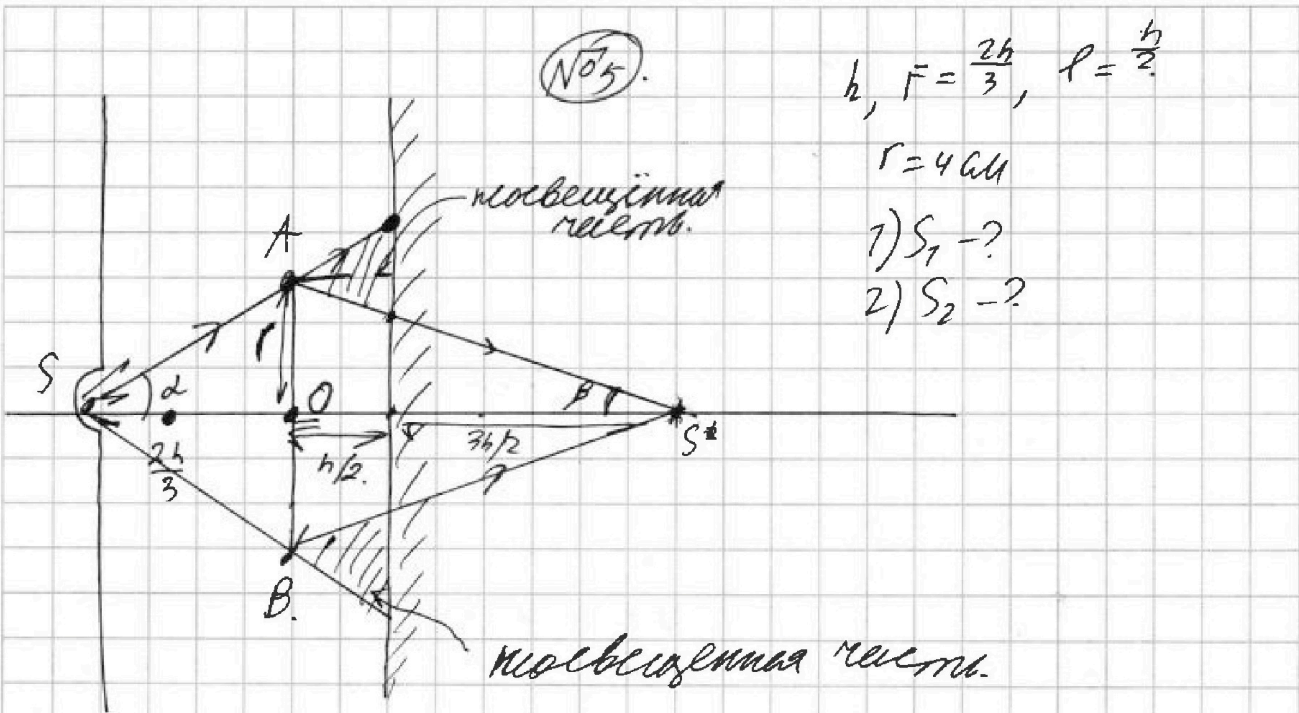 №5.
h, F = 2h/3, l = h/2
r = 4 см
1) S₁ - ?
2) S₂ - ?
неосвещённая
часть.
A
r
S
α
O
β
S*
2h/3
h/2.
3h/2
B.
неосвещенная часть.